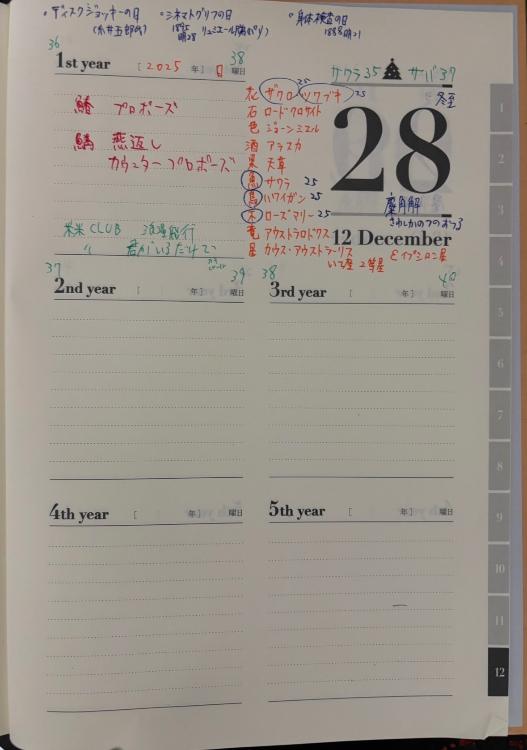 ・ディスクジョッキーの日
(糸井五郎氏)
・シネマトグラフの日
1895
明28 リュミエール兄弟(パリ)
・身体検査の日
1888明21
36
38
1st year [2025 年] 日 曜日
サクラ35 サバ37
冬至
28
12 December
鰆 プロポーズ
鯖 恋返し
カウンタープロポーズ
米米CLUB 浪漫飛行
〃 君がいるだけで
花 ザクロ ツワブキ 25
25
石 ロードクロサイト
色 ジョーンミエル
酒 アラスカ
果 天草
魚 サワラ 25
鳥 ハワイガン 25
木 ローズマリー 25
竜 アウストラロドクス
星 カウス・アウストラーリス
いて座 2等星 εイプシロン星
麋角解
さわしかのつのおつる
37
39
2nd year [ 年] 曜日
38
40
3rd year [ 年] 曜日
4th year [ 年] 曜日
5th year [ 年] 曜日
1
2
3
4
5
6
7
8
9
10
11
12